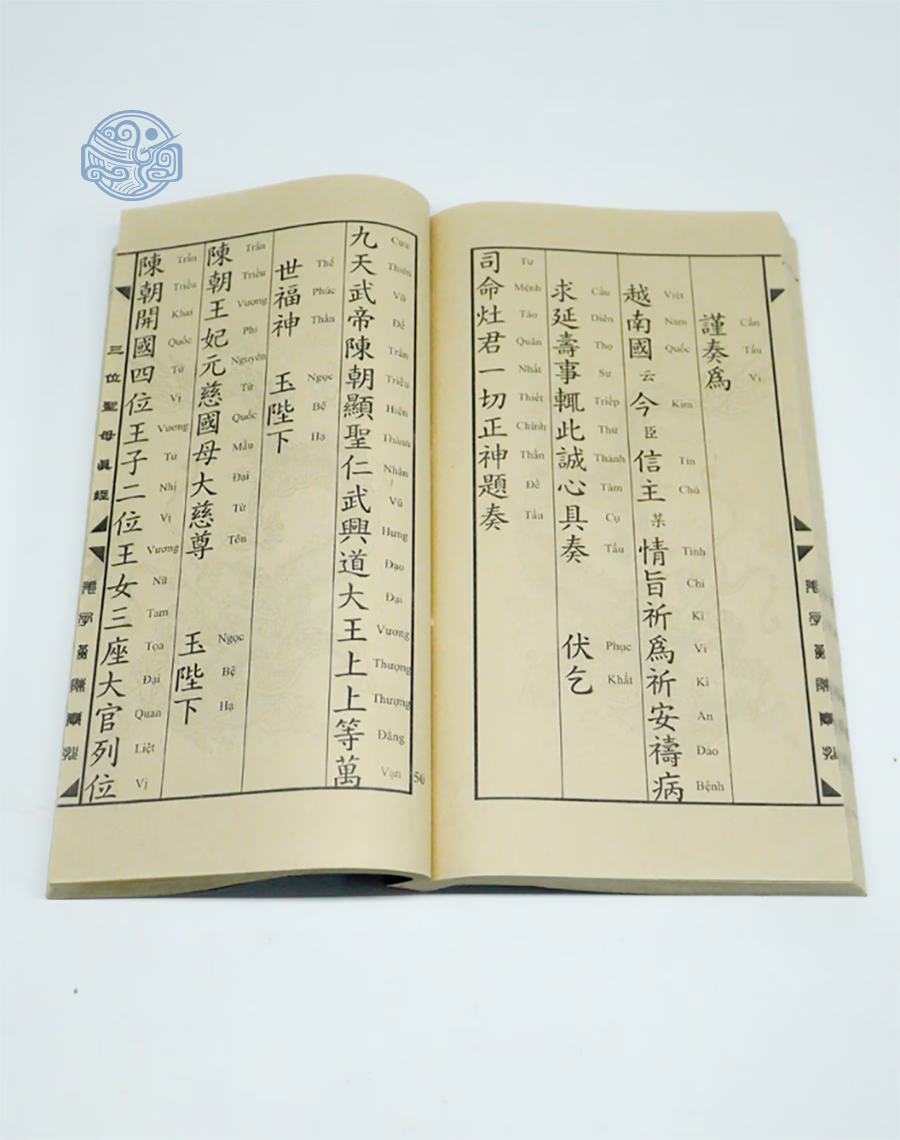 謹奏爲
Cẩn Tấu Vị
越南國云今臣信主某情旨祈爲祈安禱病
Việt Nam Quốc Kim Tín Chủ Tình Chỉ Kì Vi Kì An Đảo Bệnh
求延壽事輒此誠心具奏 伏乞
Cầu Diên Thọ Sự Triếp Thử Thành Tâm Cụ Tấu Phục Khất
司命灶君一切正神題奏
Tư Mệnh Táo Quân Nhất Thiết Chính Thần Đề Tấu
九天武帝陳朝顯聖仁武興道大王上上等萬
Cửu Thiên Vũ Đế Trần Triều Hiển Thánh Nhân Vũ Hưng Đạo Đại Vương Thượng Thượng Đẳng Vạn
世福神 玉陛下
Thế Phúc Thần Ngọc Bệ Hạ
陳朝王妃元慈國母大慈尊 玉陛下
Trần Triều Vương Phi Nguyên Từ Quốc Mẫu Đại Từ Tôn Ngọc Bệ Hạ
陳朝開國四位王子二位王女三座大官列位
Trần Triều Khai Quốc Tứ Vị Vương Tử Nhị Vị Vương Nữ Tam Tọa Đại Quan Liệt Vị
三位聖母眞經
50